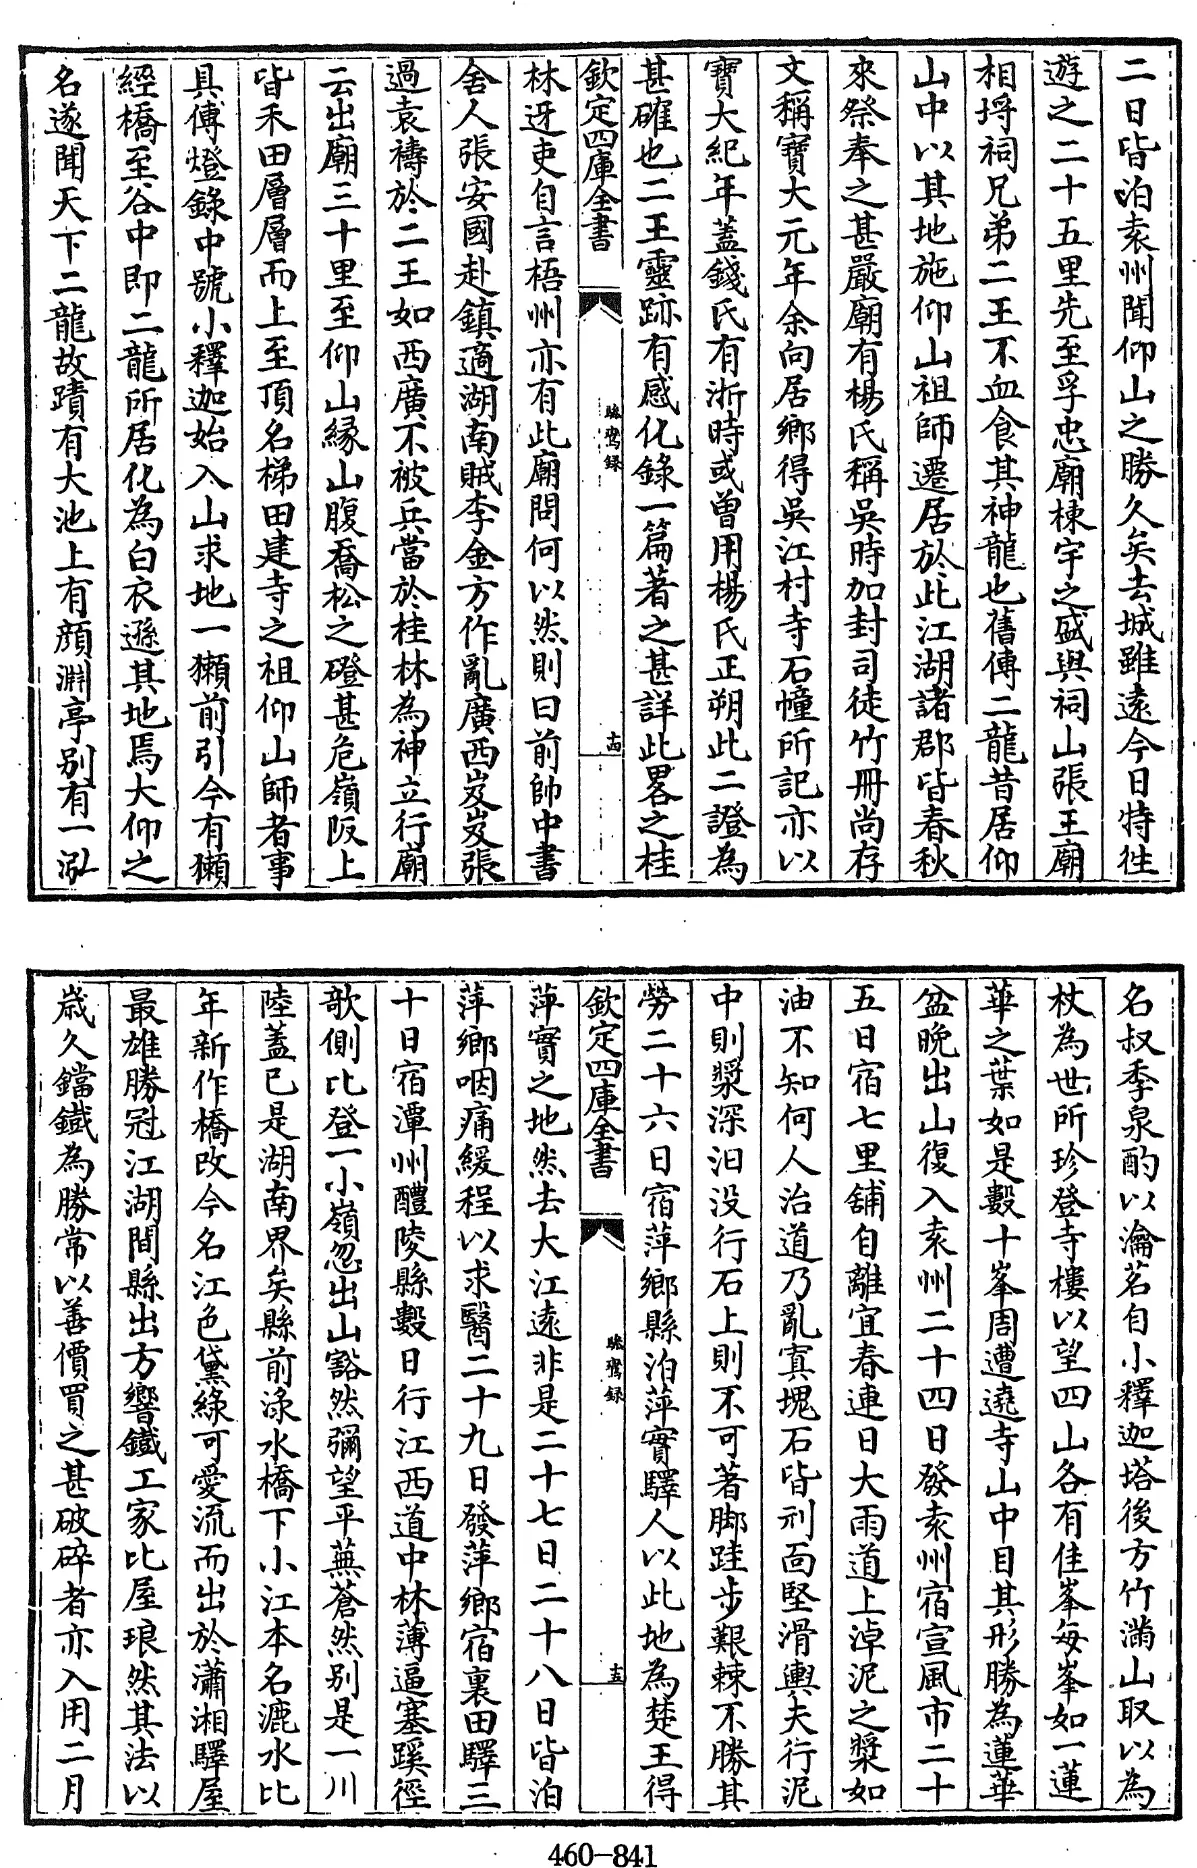 二日皆泊袁州聞仰山之勝久矣去城雖遠今日特徃
遊之二十五里先至孚忠廟棟宇之盛與祠山張王廟
相埒祠兄弟二王不血食其神龍也舊傳二龍昔居仰
山中以其地施仰山祖師遷居於此江湖諸郡皆春秋
來祭奉之甚嚴廟有楊氏稱吳時加封司徒竹冊尚存
文稱寶大元年余向居鄉得吳江村寺石幢所記亦以
寶大紀年蓋錢氏有浙時或曽用楊氏正朔此二證為
甚確也二王靈跡有感化錄一篇著之甚詳此畧之桂
欽定四庫全書
驂鸞録
十四
林迓吏自言梧州亦有此廟問何以然則曰前帥中書
舍人張安國赴鎮適湖南賊李金方作亂廣西岌岌張
過袁禱於二王如西廣不被兵當於桂林為神立行廟
云出廟三十里至仰山緣山腹喬松之磴甚危嶺阪上
皆禾田層層而上至頂名梯田建寺之祖仰山師者事
具傳燈錄中號小釋迦始入山求地一獺前引今有獺
經橋至谷中即二龍所居化為白衣遜其地焉大仰之
名遂聞天下二龍故蹟有大池上有顔淵亭别有一泓
名叔季泉酌以瀹茗自小釋迦塔後方竹滿山取以為
杖為世所珍登寺樓以望四山各有佳峯每峯如一蓮
華之葉如是數十峯周遭遶寺山中目其形勝為蓮華
盆晚出山復入袁州二十四日發袁州宿宣風市二十
五日宿七里舖自離宜春連日大雨道上淖泥之漿如
油不知何人治道乃亂寘塊石皆刓面堅滑輿夫行泥
中則漿深汩没行石上則不可著脚跬步艱棘不勝其
勞二十六日宿萍鄉縣泊萍實驛人以此地為楚王得
欽定四庫全書
驂鸞録
十五
萍實之地然去大江遠非是二十七日二十八日皆泊
萍鄉咽痛緩程以求醫二十九日發萍鄉宿裏田驛三
十日宿潭州醴陵縣數日行江西道中林薄逼塞蹊徑
欹側比登一小嶺忽出山豁然彌望平蕪蒼然别是一川
陸蓋已是湖南界矣縣前渌水橋下小江本名漉水比
年新作橋改今名江色黛綠可愛流而出於瀟湘驛屋
最雄勝冠江湖間縣出方響鐵工家比屋琅然其法以
歲久鐺鐵為勝常以善價買之甚破碎者亦入用二月
460-841